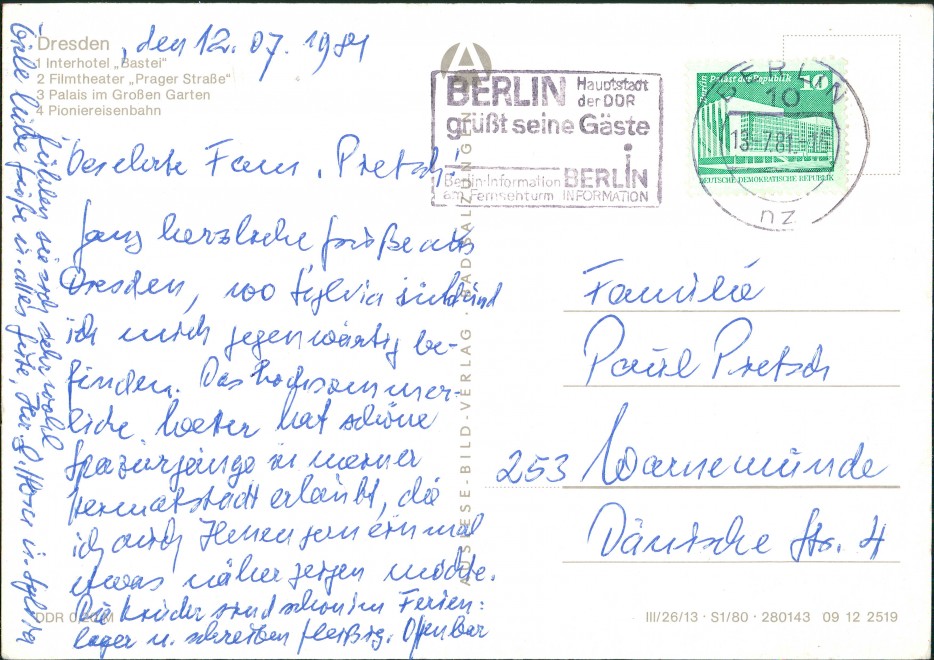 Dresden , den 12.07.1981
1 Interhotel „Bastei"
2 Filmtheater „Prager Straße"
3 Palais im Großen Garten
4 Pioniereisenbahn
Verehrte Fam. Pretsch!
Ganz herzliche Grüße aus
Dresden, wo Sylvia und
ich mich gegenwärtig be-
finden. Das hochsommer-
liche Wetter hat schöne
Spaziergänge in meiner
Heimatstadt erlaubt, die
ich auch Ihnen gern einmal
etwas näher zeigen möchte.
Die Kinder sind schon im Ferien-
lager u. schreiben fleißig. Offenbar
fühlen sie sich sehr wohl
Viele liebe Grüße u. alles Gute, Ihr u. Sylvia
DDR
BILD-VERLAG · BAD SALZUNGEN
BERLIN Hauptstadt
der DDR
grüßt seine Gäste
Berlin-Information
am Fernsehturm
BERLIN
INFORMATION
Berlin, Palast der Republik
10
DEUTSCHE DEMOKRATISCHE REPUBLIK
BERLIN
10
13.-7.81.-
nz
Familie
Paul Pretsch
253 Warnemünde
Dänische Str. 4
III/26/13 · S1/80 · 280143 09 12 2519